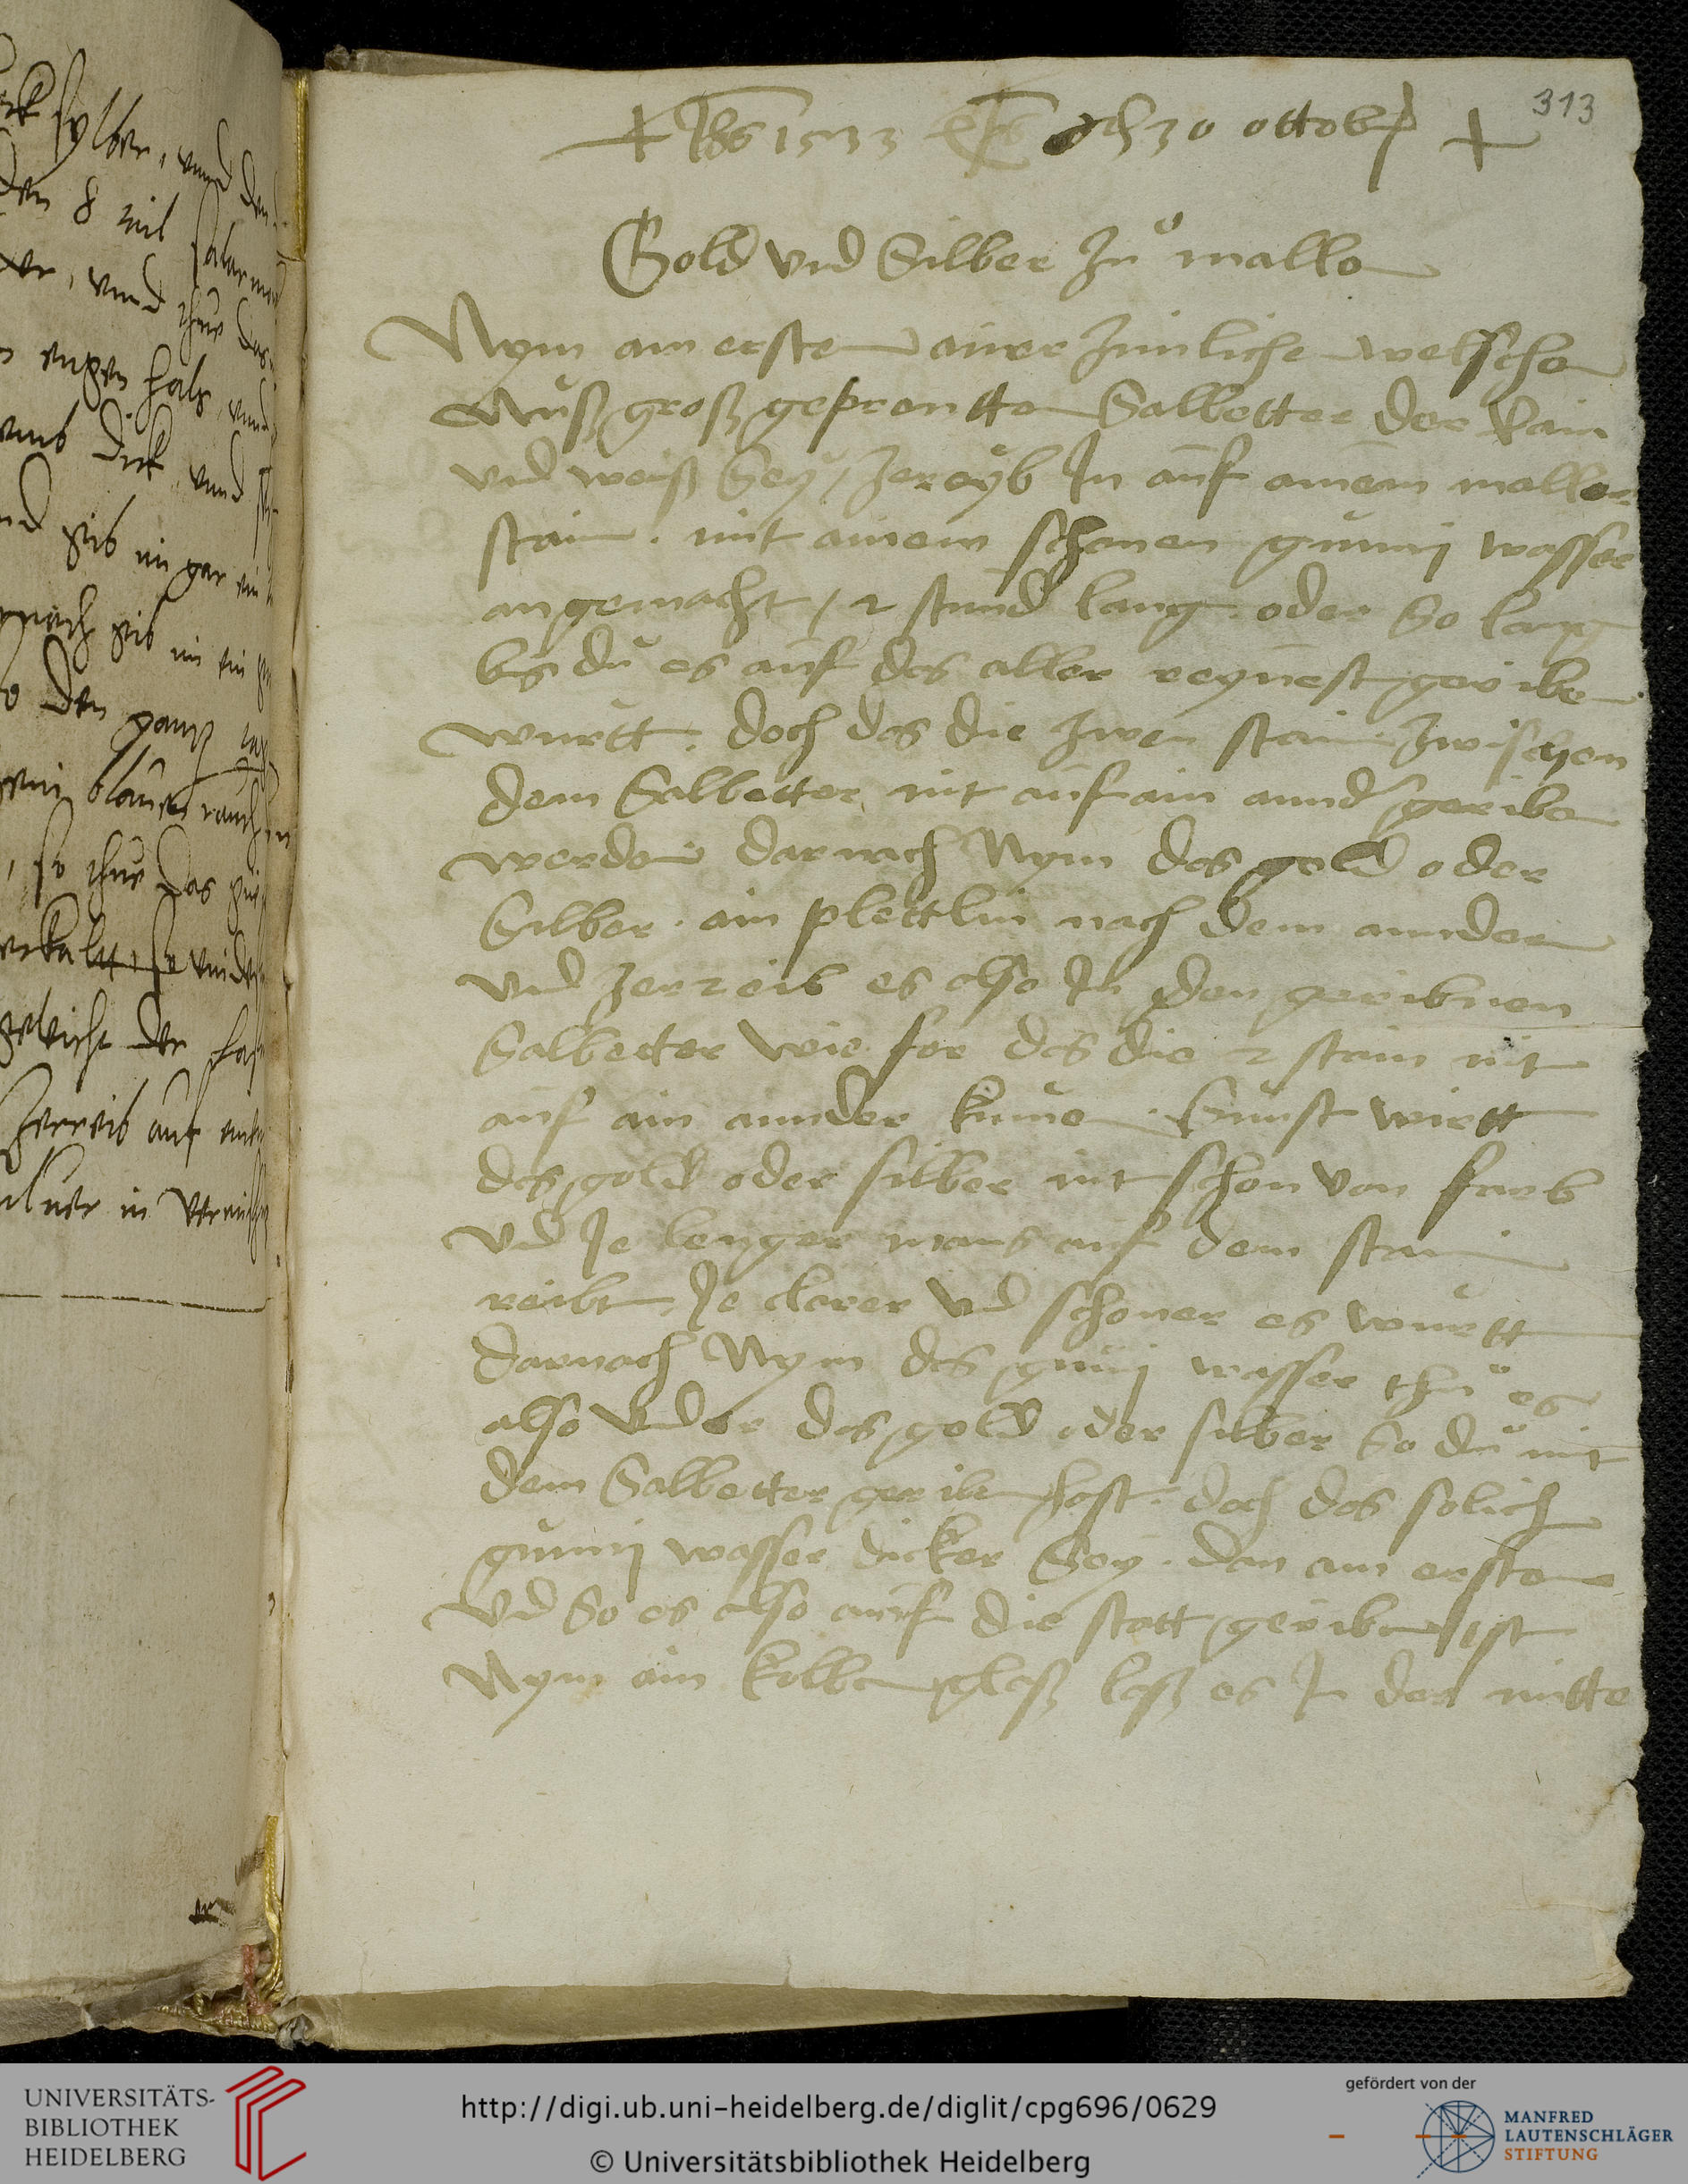 313
+ Jhs 1533 adj 30 ottob +
Gold vnd Silber zů mallen
Nym am ersten ainer zimlichen welschen
Nuß groß geprentten Salbetter der Rain
vnd weiß Sey / zereyb In auf ainem maller
stain . mit ainem schonen gumij wasser
angemacht / 2 stund lang . oder So lang
bis du es auf das aller reynest geriben
wurtt . doch das die zwen stain zwischen
dem Salbetter nit auf ain annder geriben
werden darnach Nym das gold oder
Silber . ain plettlin nach dem annder
vnd zerreib es also In den geribnen
Salbetter wie for das die 2 stain nit
auf ain annder kumen . Sunst wirtt
das gold oder silber nit schon von farb
vnd Je lenger mans auf dem stain
reibt Je clorer vnd schoner es wurtt
darnach Nym das gumij wasser thů es
also vnder das gold oder silber So du mit
dem Salbetter geriben hast . doch das solich
gumij wasser dicker Sey . dan am ersten
vnd So es also auf die stett geriben ist
Nym ain kolben glaß laß es In der mitte
sylber, vnnd den
den 8 mit
vnnd thue das
engen hals, vnnd
dick vnnd
gib im gar ein
nach gib im ein
den gantz
ein blauer rauch
, so thue das
erkalt, so
zerreib auf
in
UNIVERSITÄTS-
BIBLIOTHEK
HEIDELBERG
http://digi.ub.uni-heidelberg.de/diglit/cpg696/0629
© Universitätsbibliothek Heidelberg
gefördert von der
MANFRED
LAUTENSCHLÄGER
STIFTUNG